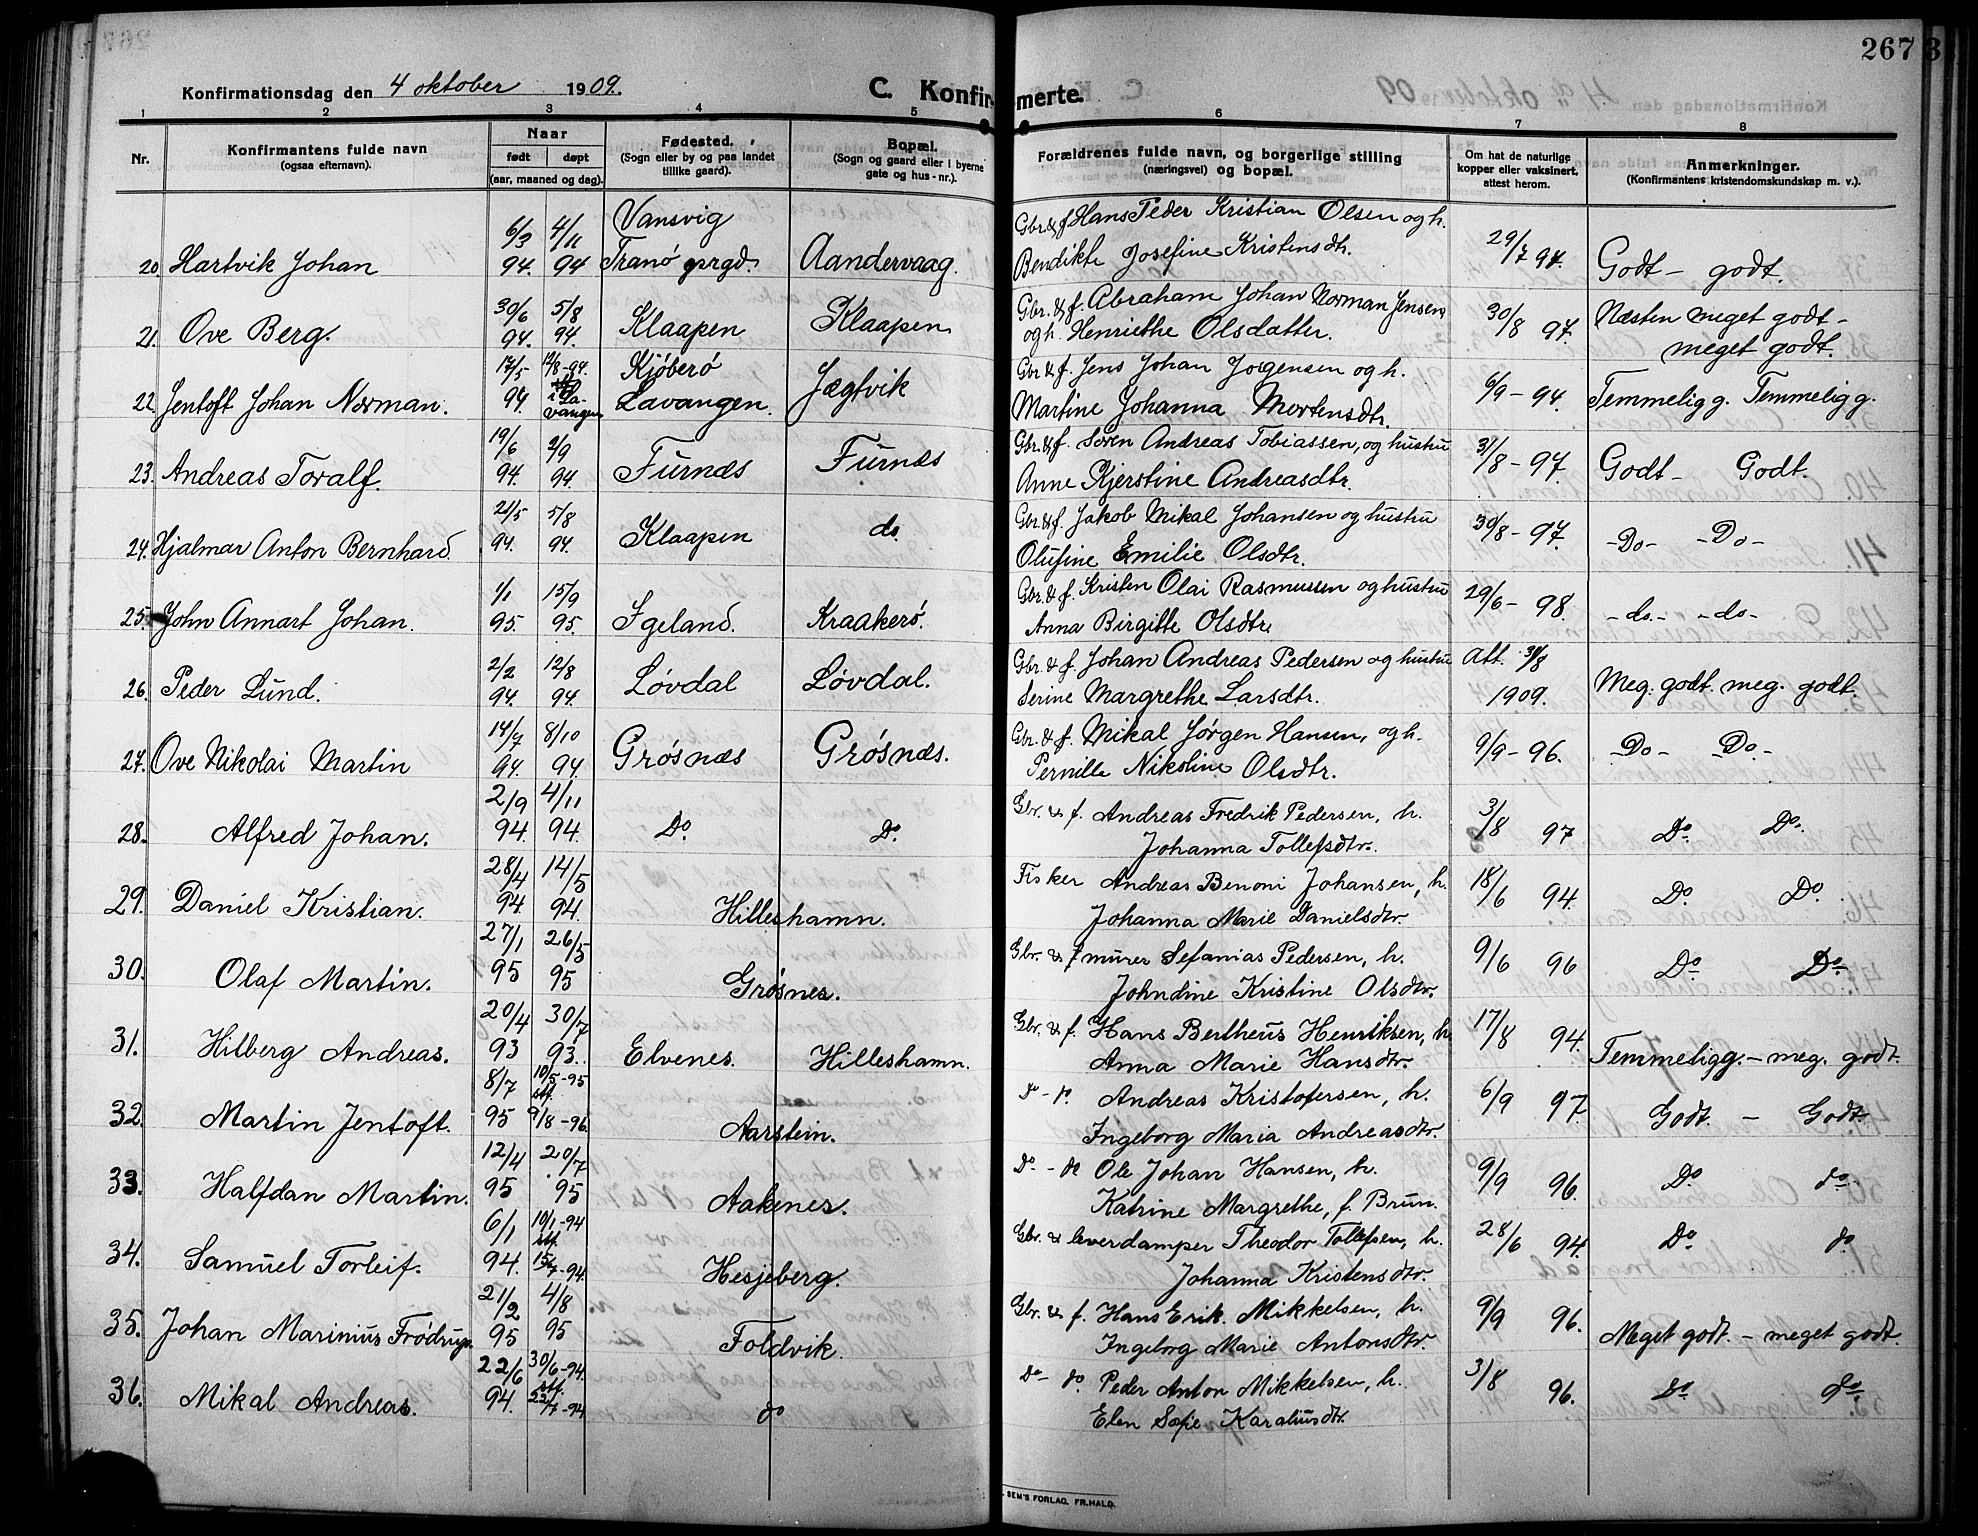 267
Konfirmationsdag den 4 oktober 1909.
C. Konfirmerte.
1 2 3 4 5 6 7 8
Nr.
Konfirmantens fulde navn
(ogsaa efternavn).
Naar
født døpt
(aar, maaned og dag).
Fødested.
(Sogn eller by og paa landet
tillike gaard).
Bopæl.
(Sogn og gaard eller i byerne
gate og hus-nr.).
Forældrenes fulde navn, og borgerlige stilling
(næringsvei) og bopæl.
Om hat de naturlige
kopper eller vaksinert,
attest herom.
Anmerkninger.
(Konfirmantens kristendomskundskap m. v.).
6/3 4/11 Vansvig Gbr. & f. Hans Peder Kristian Olsen og h.
20. Hartvik Johan 94. 94 Tranö prgd. Aandervaag. Bendikte Josefine Kristensdtr. 29/7 94. Godt – godt.
30/6 5/8 Gbr. & f. Abraham Johan Norman Jensen
21. Ove Berg. 94. 94. Klaapen Klaapen og h. Henriette Olsdatter. 30/8 97. Næsten meget godt –
meget godt.
17/5 Kjöberö Gbr & f. Jens Johan Jørgensen og h.
22. Jentoft Johan Norman. 94. i Lavangen Lavangen. Jægtvik Martine Johanna Mortensdtr. 6/9 – 94. Temmelig g. Temmelig g.
19/6 2/9 Gbr. & f. Søren Andreas Tobiassen, og hustru
23. Andreas Toralf. 94. 94. Furnæs Furnæs Anne Kjerstine Andreasdtr. 31/8 – 97. Godt – Godt.
21/5 5/8 Gbr. & f. Jakob Mikal Johansen og hustru
24. Hjalmar Anton Bernhard 94. 94. Klaapen do. Olufine Emilie Olsdtr. 30/8 – 97. – Do – – Do –
1/1 15/9 Gbr. & f. Kristen Olai Rasmussen og hustru
25. John Annart Johan. 95. 95. Igeland. Kraakerö. Anna Birgitte Olsdtr. 29/6 – 98. – do. – – do –
2/2 12/8 Gbr. & f. Johan Andreas Pedersen og hustru Att.
26. Peder Lund. 94. 94. Lövdal Lövdal. Serine Margrethe Larsdtr. 1909. Meg. godt. meg. godt.
14/7 8/10 Gbr. & f. Mikal Jørgen Hansen, og h.
27. Ove Nikolai Martin 94. 94. Grösnæs Grösnæs. Pernille Nikoline Olsdtr. 9/9 – 96. – Do – Do –
2/9 4/11 Gbr. & f. Andreas Fredrik Pedersen, h.
28. Alfred Johan. 94. 94. Do. Do. Johanna Tollefsdtr. 3/8 97 Do. Do.
28/4 14/5 Fisker Andreas Benoni Johansen, h.
29. Daniel Kristian. 94. 94. Hilleshamn. Johanna Marie Danielsdtr. 18/6 94. Do. Do.
27/1 26/5 Gbr. & f murer Sefanias Pedersen, h.
30. Olaf Martin. 95 95 Grösnes. Johndine Kristine Olsdtr. 9/6 96 Do Do
20/4 30/7 Gbr. & f. Hans Bertheus Henriksen, h.
31. Hilberg Andreas. 93 93. Elvenes. Hilleshamn. Anna Marie Hansdtr. 17/8 94. Temmelig g. – meg. godt.
8/7 10/5-95 stf. do – do. Andreas Kristofersen, h.
32. Martin Jentoft. 95 9/8-96 Aarstein. Ingeborg Maria Andreasdtr. 6/9 97. Godt. – Godt.
12/4 20/7 Do – do Ole Johan Hansen, h.
33. Halfdan Martin. 95 95 Aakenes. Katrine Margrethe, f. Brun. 9/9 96. Do do.
6/1 10/1-94 stf. Gbr. & leverdamper Theodor Tollefsen, h.
34. Samuel Torleif. 94. 15/7-94. Hesjeberg. Johanna Kristensdtr. 28/6 94. Do do
21/2 4/8 Gbr. & f. Hans Erik Mikkelsen, h.
35. Johan Marinius Frödrup. 95 95 Foldvik. Ingeborg Marie Antonsdtr. 9/9 96. Meget godt. – meget godt.
22/6 30/6-94. stf. Do – do. Peder Anton Mikkelsen, h.
36. Mikal Andreas. 94. 23/7-94 do Elen Sofie Karoliusdtr. 3/8 96. do do.
SEM'S FORLAG, FR.HALD.